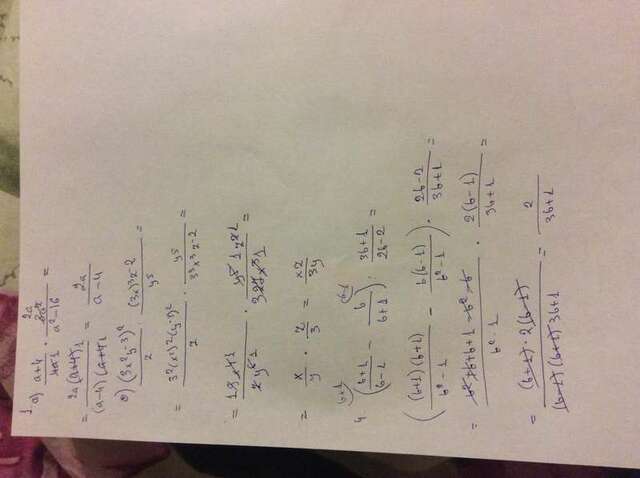 1. а) (a+4)/(4a) 1 · 2a 8a²/(a²-16) =
= 2a(a+4)1/((a-4)(a+4)1) = 2a/(a-4)
(3x²y-3)²/z · (3x)³z-2/y⁵ =
= 3²(x²)²(y-3)²/z · y⁵/(3³x³z-2) =
= x/y · z/3 = xz/3y
b+1 b-1
4. ((b+1)/(b-1) - b/(b+1)) : (3b+1)/(2b-2) =
((b+1)(b+1)/(b²-1) - b(b-1)/(b²-1)) · (2b-2)/(3b+1) =
= (b²+b+b+1-b²-b)/(b²-1) · 2(b-1)/(3b+1) =
= (b+1)·2(b-1)/((b-1)(b+1)3b+1) = 2/(3b+1)